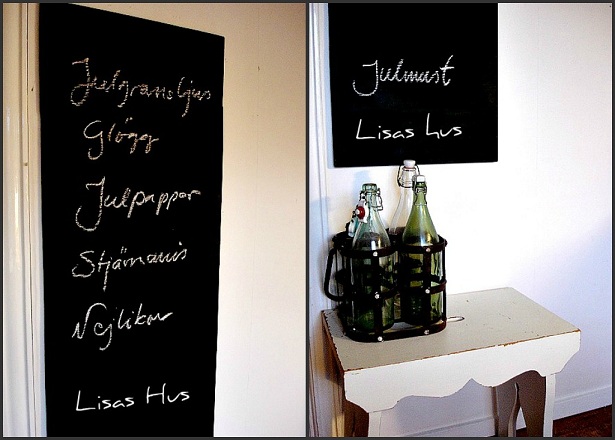 Julgransljus
Glögg
Julpapper
Stjärnanis
Nejlikor
Lisas Hus
Julmust
Lisas hus